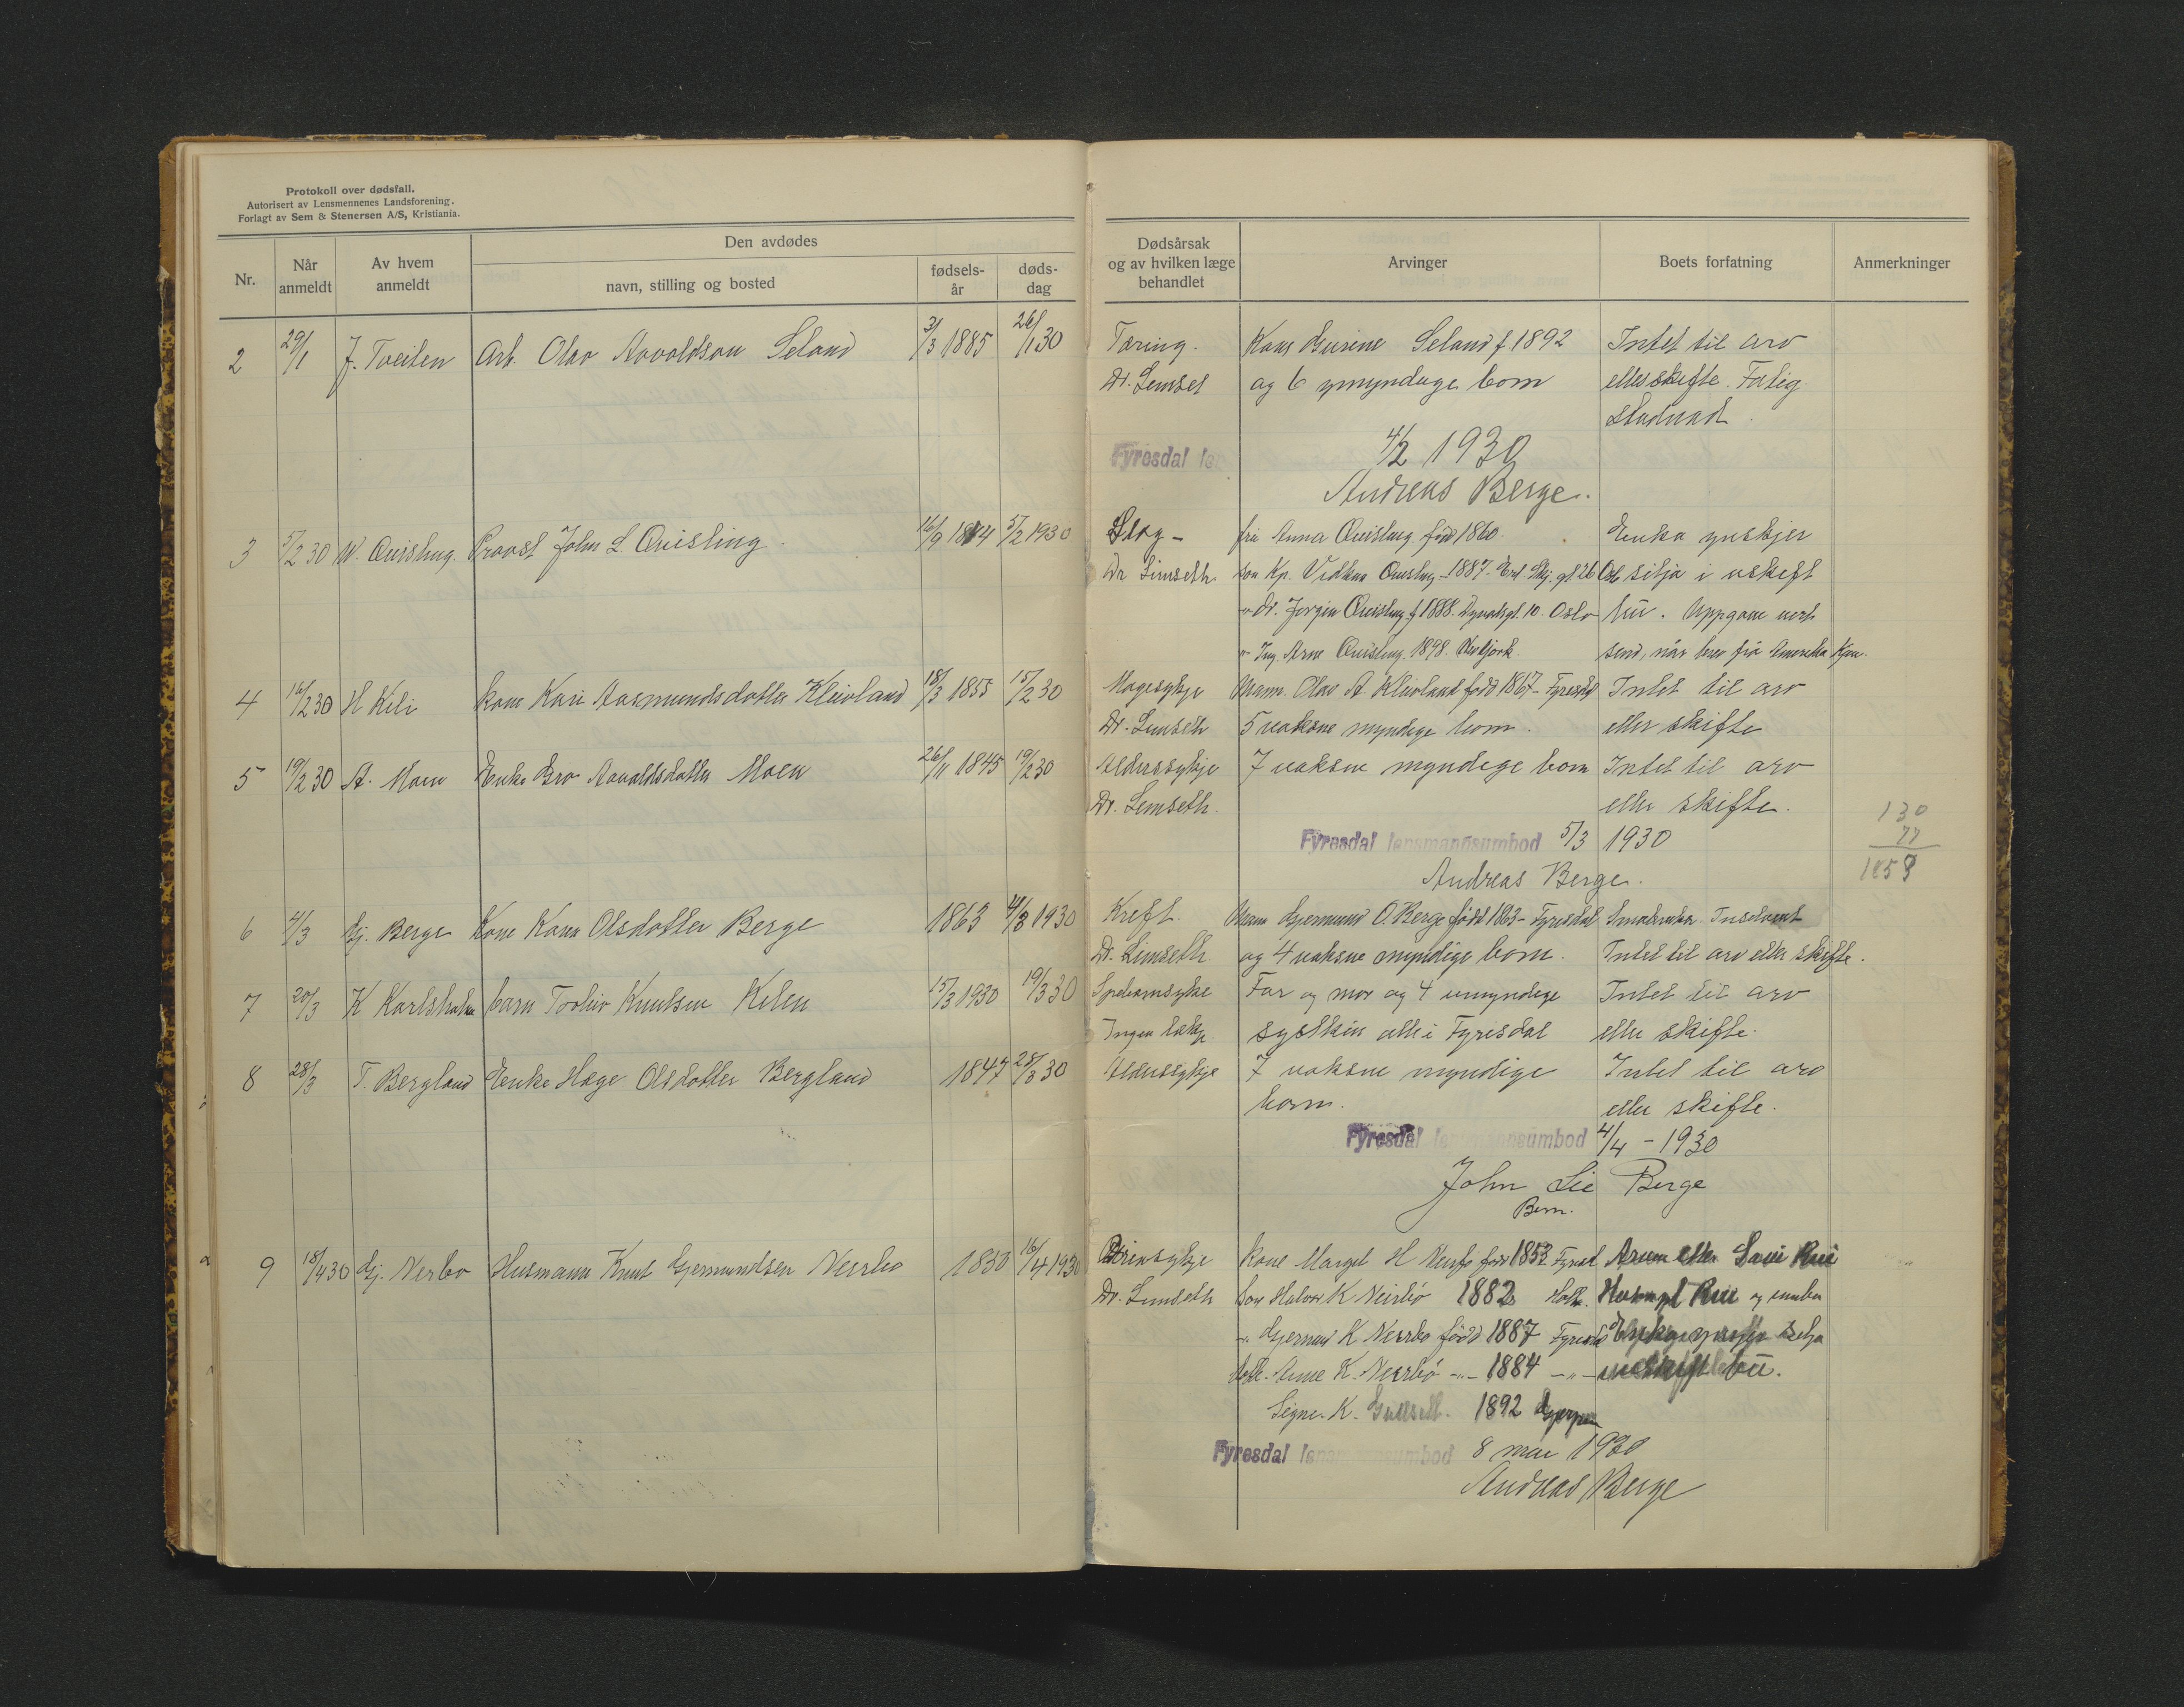 Protokoll over dødsfall.
Autorisert av Lensmennenes Landsforening.
Forlagt av Sem & Stenersen A/S, Kristiania.
Nr.
Når anmeldt
Av hvem anmeldt
Den avdødes
navn, stilling og bosted
fødsels-år
døds-dag
Dødsårsak og av hvilken læge behandlet
Arvinger
Boets forfatning
Anmerkninger
2 29/1 J. Tveiten Arb. Olav Aavoldson Seland 3/3 1885 26/1 30 Tæring. Kone Gurine Seland f 1892 Intet til arv
Dr. Lemset og 6 umynduge born eller skifte. Fatig
4/2 1930
Fyresdal
Andreas Berge.
3 5/2 30 W. Quisling. Provst John L Quisling. 16/9 1844 5/2 1930 Slag - fru Anna Quisling född 1860. Enka ynskjer
Dr Limseth. son Kp. Vidkun Quisling - 1887 - Erl. Skj. gt 26 Osl sitja i uskift
" Dr. Jørgin Quisling f 1888. 10. Oslo bu. Uppgave vert
" Ing. Arne Quisling. 1898. Nevjork. send, når brev frå Amerika kjem.
4 16/2 30 H Kili kone Kari Aasmundsdotter Kleivland 18/3 1855 15/2 30 Magesykje Mann. Olav A Kleivland född 1867 - Fyresdal Intet til arv
Dr. Lemseth 5 vaksne myndige born. eller skifte
5 19/2 30 A. Moen Enke Gro Aavoldsdotter Moen 26/11 1845 19/2 30 Alderssykje 7 vaksne myndige born Intet til arv
Dr. Lemseth. eller skifte.
130
77
Fyresdal lensmannsumbod 5/3 1930
Andreas Berge.
6 4/3 Gj. Berge Kone Olsdotter Berge 1863 4/3 1930 Kreft. Mann Gjermund O. Berge född 1863 - Fyresdal Insolvent
Dr. Limseth og 4 vaksne myndige born. Intet til arv eller skifte.
7 20/3 K barn Torleiv Knutsen Kilen 15/3 1930 19/3 30 Spebarnsykje Far og mor og 4 umyndige Intet til arv
Ingen systkin alle i Fyrisdal eller skifte.
8 28/3 T. Bergland Enke Hæge Olsdotter Bergland 1847 28/3 30 Alderssykje 7 vaksne myndige Intet til arv
born. eller skifte.
Fyresdal lensmannsumbod 4/4 - 1930
John Lie Berge
Bem.
9 18/4 30 Gj. Nerbo Husmann Knut Gjermundsen Nesrbo 1850 16/4 1930 kone Marget H 1853
Dr. Lemseth son Halvor K Neirbö 1882
" K Nesrbo född 1887 Fyresdal
dott. Anne K. Nesrbö -"- 1884 -"- bu.
Signe K. 1892
Fyresdal lensmannsumbod 8 mai 1930
Andreas Berge